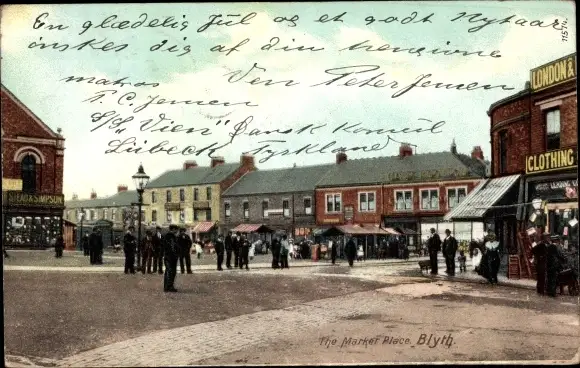 En glædelig Jul og et godt Nytaar
ønskes dig af din hengivne
Ven Peter Jensen
P. C. Jensen
S/S "Vien" Dansk Konsul
Lübeck Tyskland
11574
LONDON &
CLOTHING
& SIMPSON
The Market Place, Blyth.